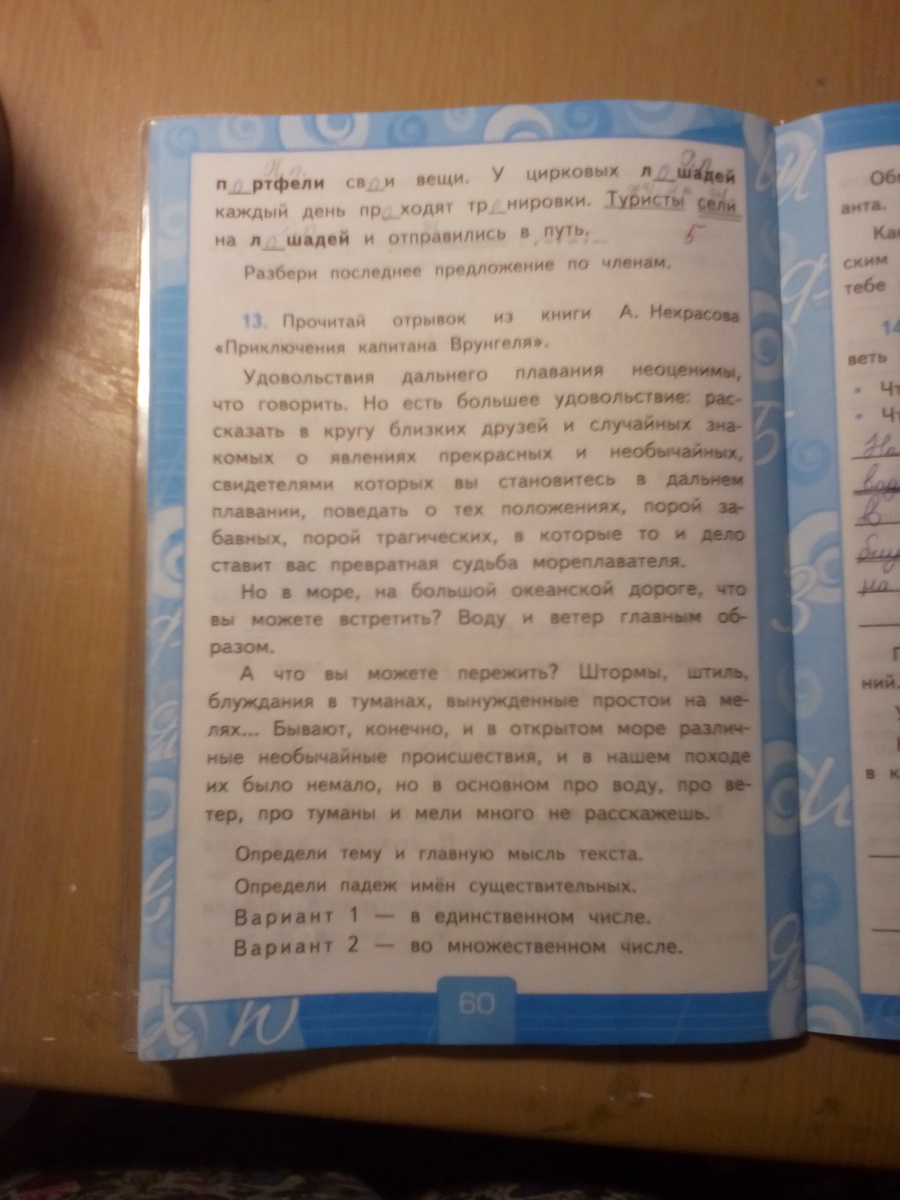 портфели свои вещи. У цирковых лошадей
каждый день проходят тренировки. Туристы сели
на лошадей и отправились в путь. 5
Разбери последнее предложение по членам.
13. Прочитай отрывок из книги А. Некрасова
«Приключения капитана Врунгеля».
Удовольствия дальнего плавания неоценимы,
что говорить. Но есть большее удовольствие: рас-
сказать в кругу близких друзей и случайных зна-
комых о явлениях прекрасных и необычайных,
свидетелями которых вы становитесь в дальнем
плавании, поведать о тех положениях, порой за-
бавных, порой трагических, в которые то и дело
ставит вас превратная судьба мореплавателя.
Но в море, на большой океанской дороге, что
вы можете встретить? Воду и ветер главным об-
разом.
А что вы можете пережить? Штормы, штиль,
блуждания в туманах, вынужденные простои на ме-
лях... Бывают, конечно, и в открытом море различ-
ные необычайные происшествия, и в нашем походе
их было немало, но в основном про воду, про ве-
тер, про туманы и мели много не расскажешь.
Определи тему и главную мысль текста.
Определи падеж имён существительных.
Вариант 1 — в единственном числе.
Вариант 2 — во множественном числе.
60
анта.
ским
тебе
14
веть
на
ний.
в к